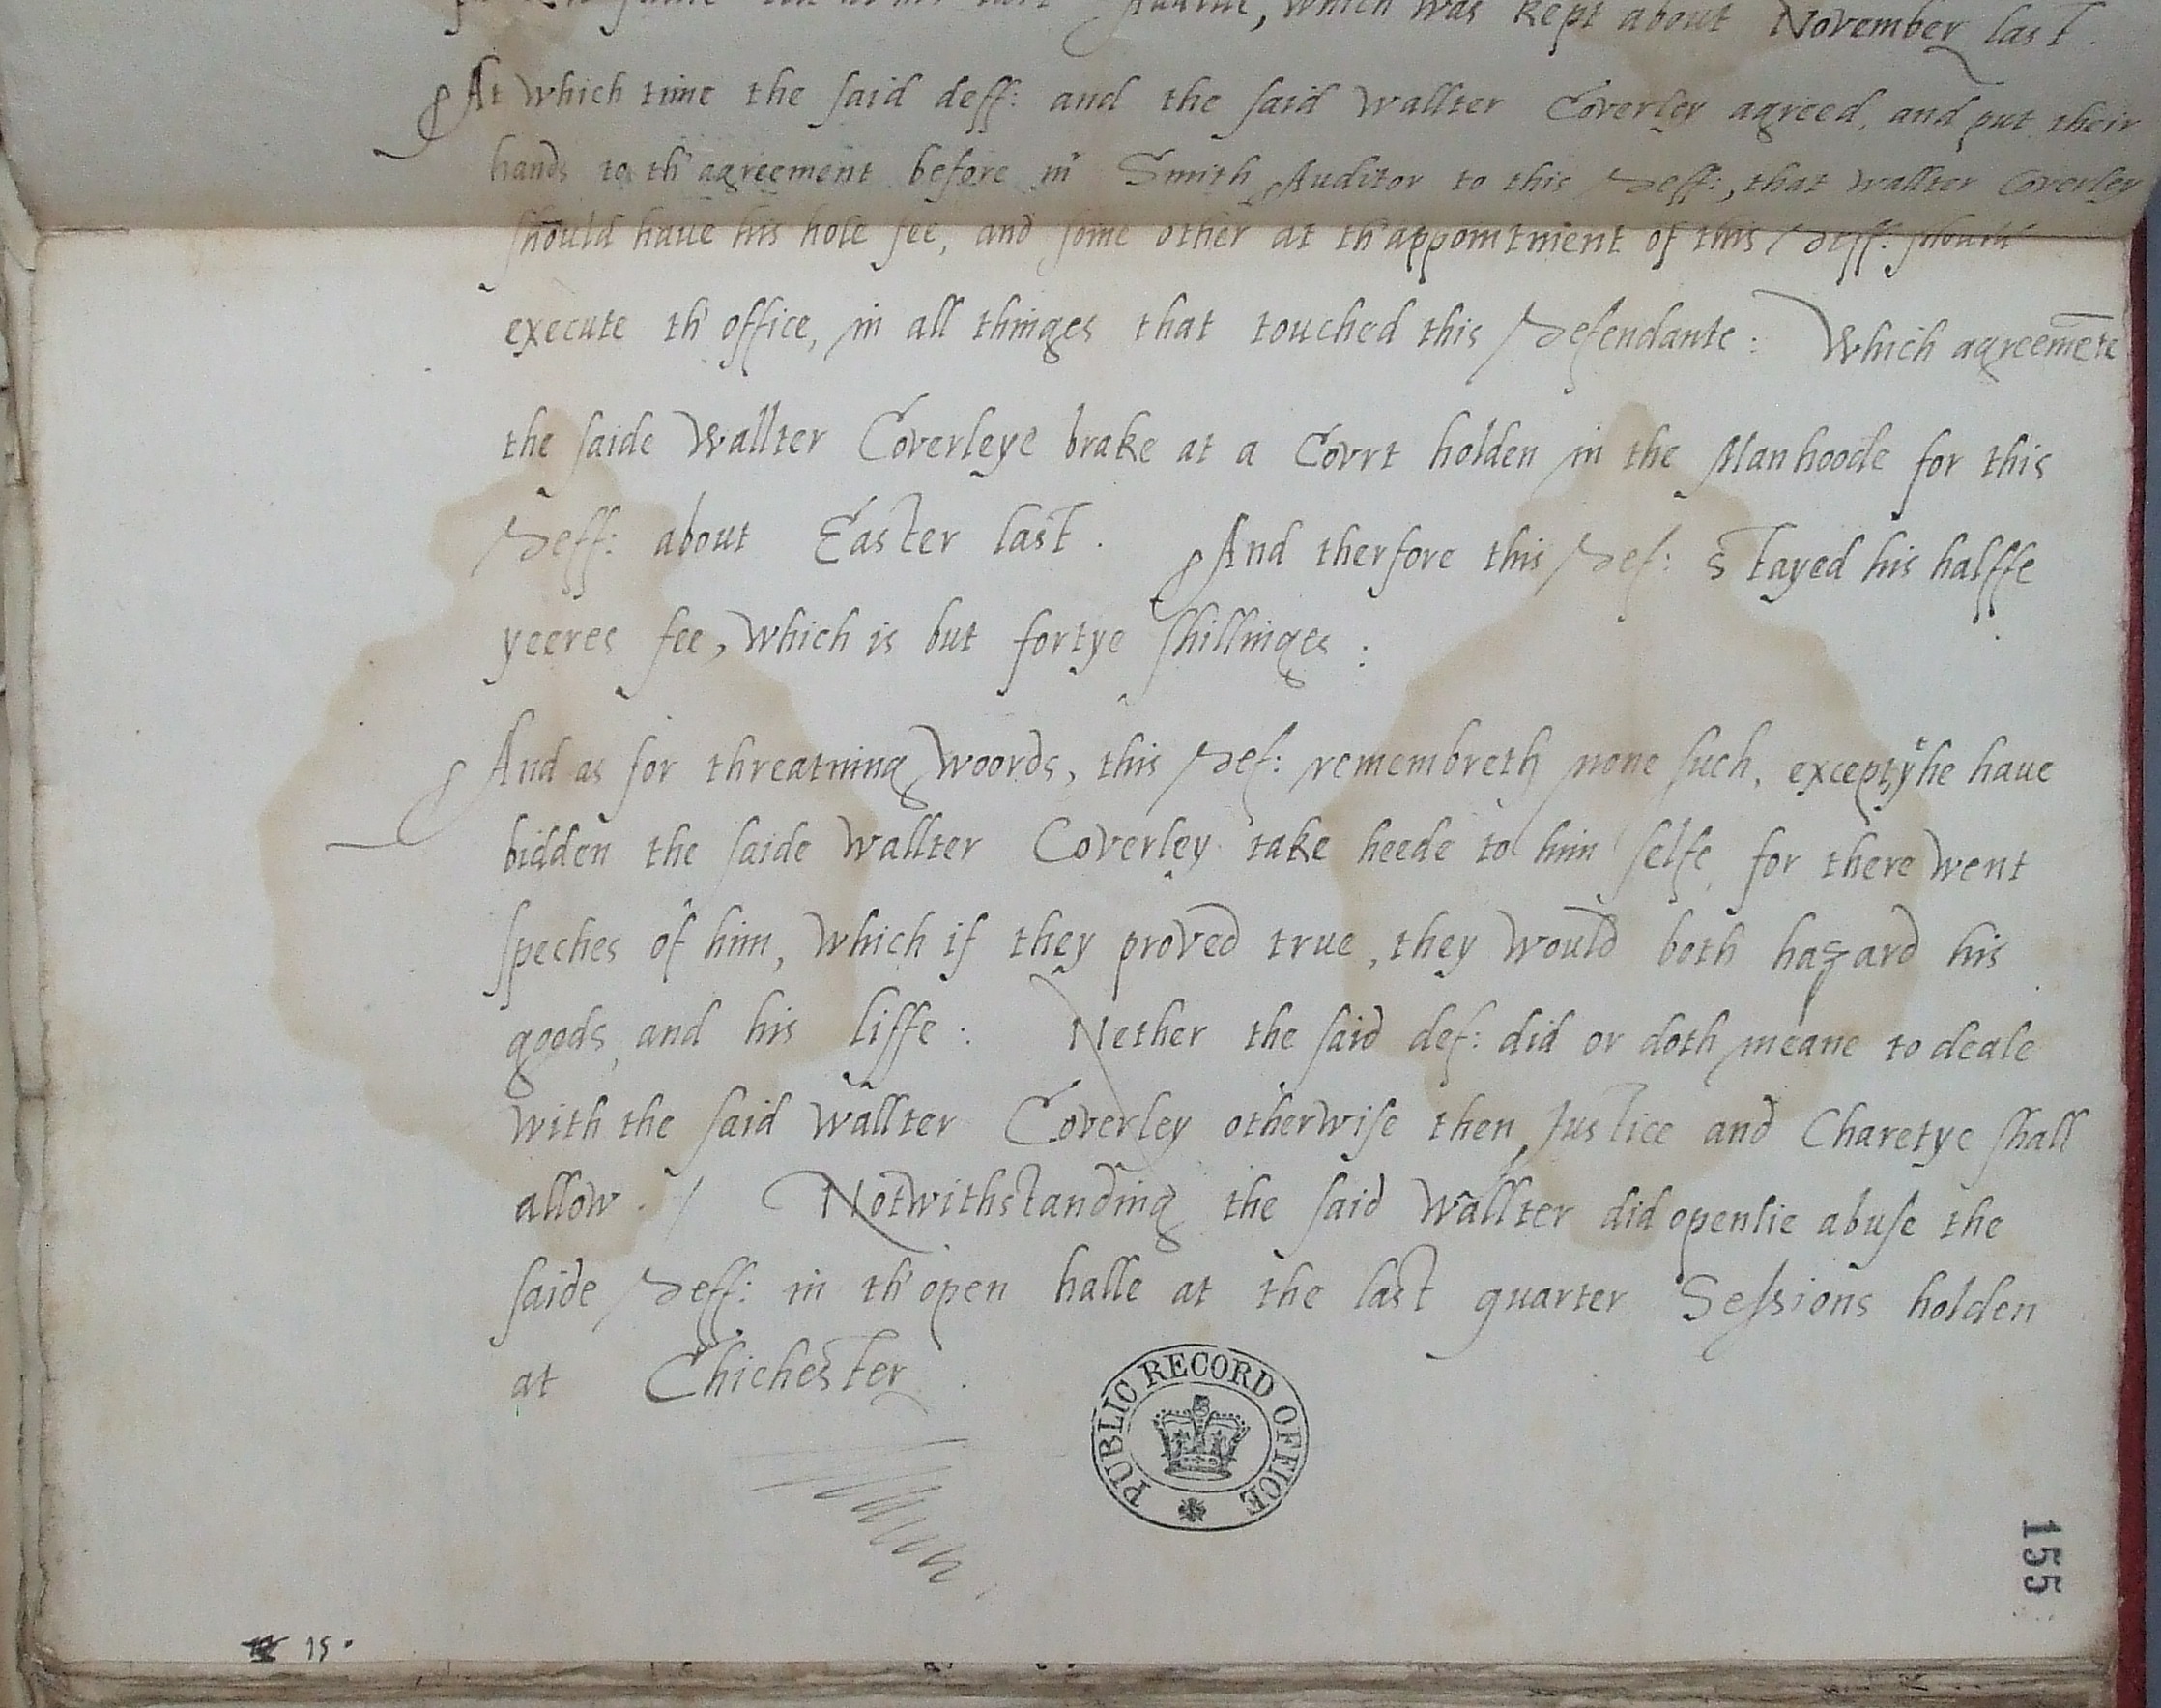 which was kept about November last.
At which time the said deff: and the said Wallter Coverley agreed, and put their
hands to th'agreement before mr Smith Auditor to this Deff:, that Wallter Coverley
should haue his hole fee, and some other at th'appointment of this Deff: should
execute th'office, in all thinges that touched this Defendante: Which agreemēte
the saide Wallter Coverleye brake at a Covrt holden in the Manhoode for this
Deff: about Easter last. And therfore this Def: stayed his halffe
yeeres fee, which is but fortye shillinges:
And as for threatning woords, this Def: remembreth none such, except yt he haue
bidden the saide Wallter Coverley take heede to him selfe, for there went
speches of him, which if they proved true, they would both hazard his
goods, and his liffe: Nether the said def: did or doth meane to deale
with the said Wallter Coverley otherwise then Justice and Charetye shall
allow. / Notwithstanding the said Wallter did openlie abuse the
saide Deff: in th'open halle at the last quarter Sessions holden
at Chichester.
PUBLIC RECORD OFFICE
155
15.